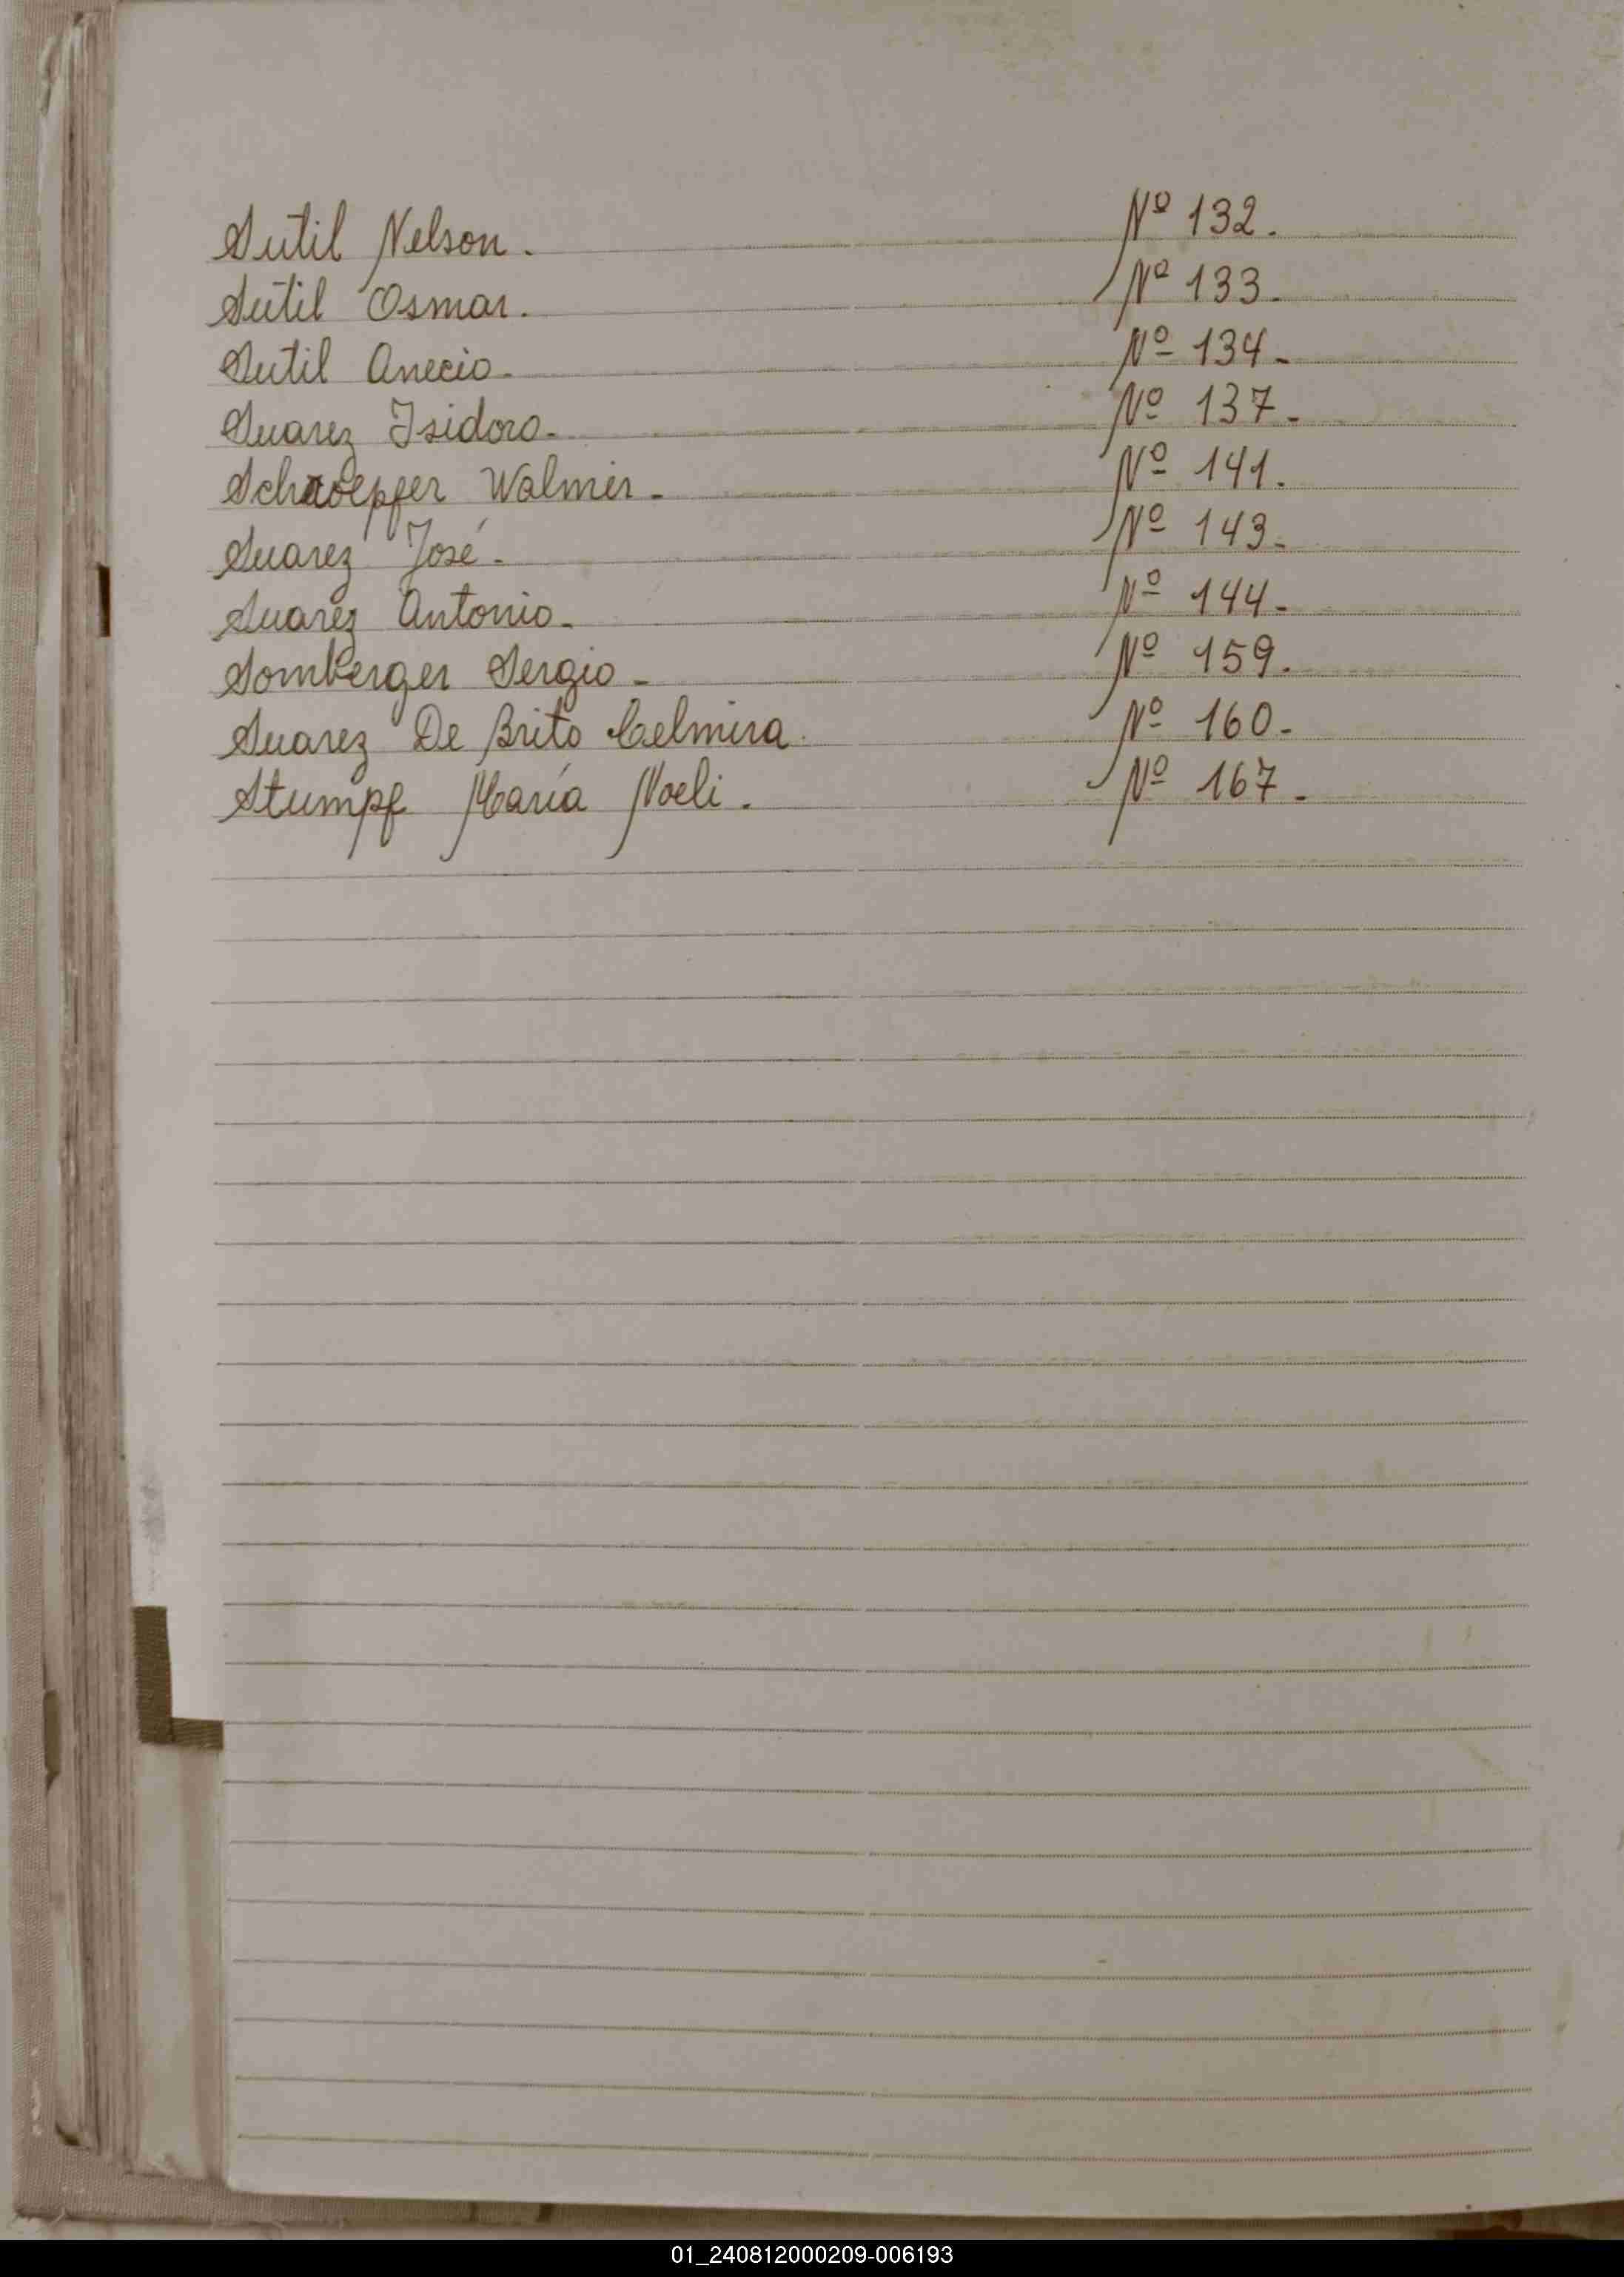 Sutil Nelson. Nº 132.
Sutil Osmar. Nº 133.
Sutil Anecio. Nº 134.
Suarez Isidoro. Nº 137.
Schaoepfer Walmir. Nº 141.
Suarez José. Nº 143.
Suarez Antonio. Nº 144.
Somberger Sergio. Nº 159.
Suarez De Brito Celmira. Nº 160.
Stumpf María Noeli. Nº 167.
01_240812000209-006193